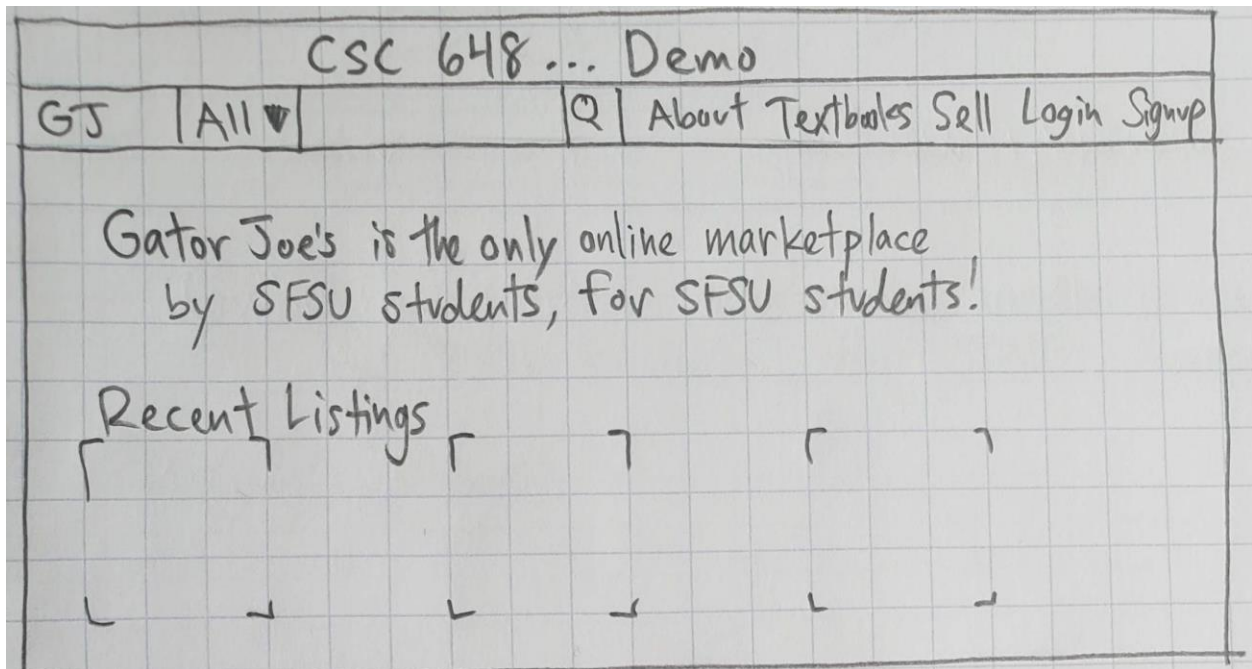 CSC 648... Demo
GJ All ▼ Q About Textbooks Sell Login Signup
Gator Joe's is the only online marketplace
by SFSU students, for SFSU students!
Recent Listings